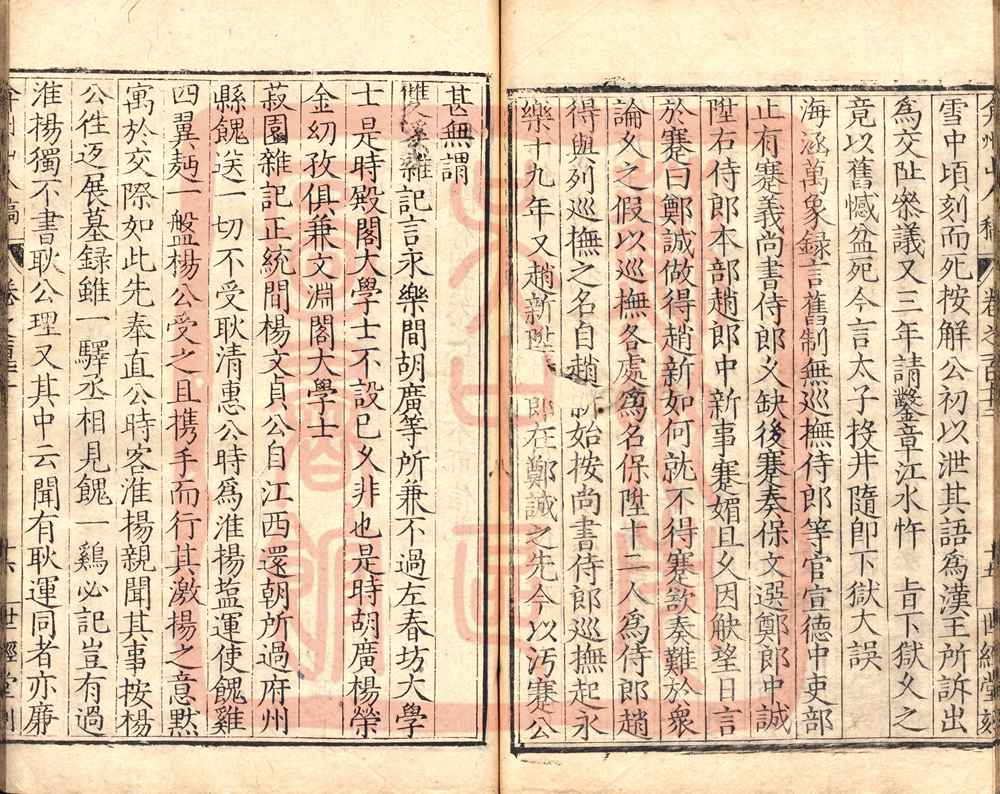 弇州山人稿 卷之百 十五 世經堂刻
雪中頃刻而死按解公初以泄其語爲漢王所訴出
爲交阯叅議又三年請鑿章江水忤 旨下獄久之
竟以舊憾益死今言太子投井隨卽下獄大誤
海涵萬象録言舊制無巡撫侍郎等官宣德中吏部
止有蹇義尚書侍郎久缺後蹇奏保文選鄭郎中誠
陞右侍郎本部趙郎中新事蹇媚且久因觖望日言
於蹇曰鄭誠做得趙新如何就不得蹇欲奏難於衆
論久之假以巡撫各處爲名保陞十二人爲侍郎趙
得與列巡撫之名自趙新始按尚書侍郎巡撫起永
樂十九年又趙新陞 郎在鄭誠之先今以汚蹇公
甚無謂
雙溪雜記言永樂間胡廣等所兼不過左春坊大學
士是時殿閣大學士不設已久非也是時胡廣楊榮
金幼孜俱兼文淵閣大學士
菽園雜記正統間楊文貞公自江西還朝所過府州
縣餽送一切不受耿清惠公時爲淮楊塩運使餽雞
四翼麪一盤楊公受之且携手而行其激揚之意黙
寓於交際如此先奉直公時客淮楊親聞其事按楊
公徃迓展墓録雖一驛丞相見餽一鷄必記豈有過
淮楊獨不書耿公理又其中云聞有耿運同者亦廉
弇州山人稿 卷之百 十六 世經堂刻